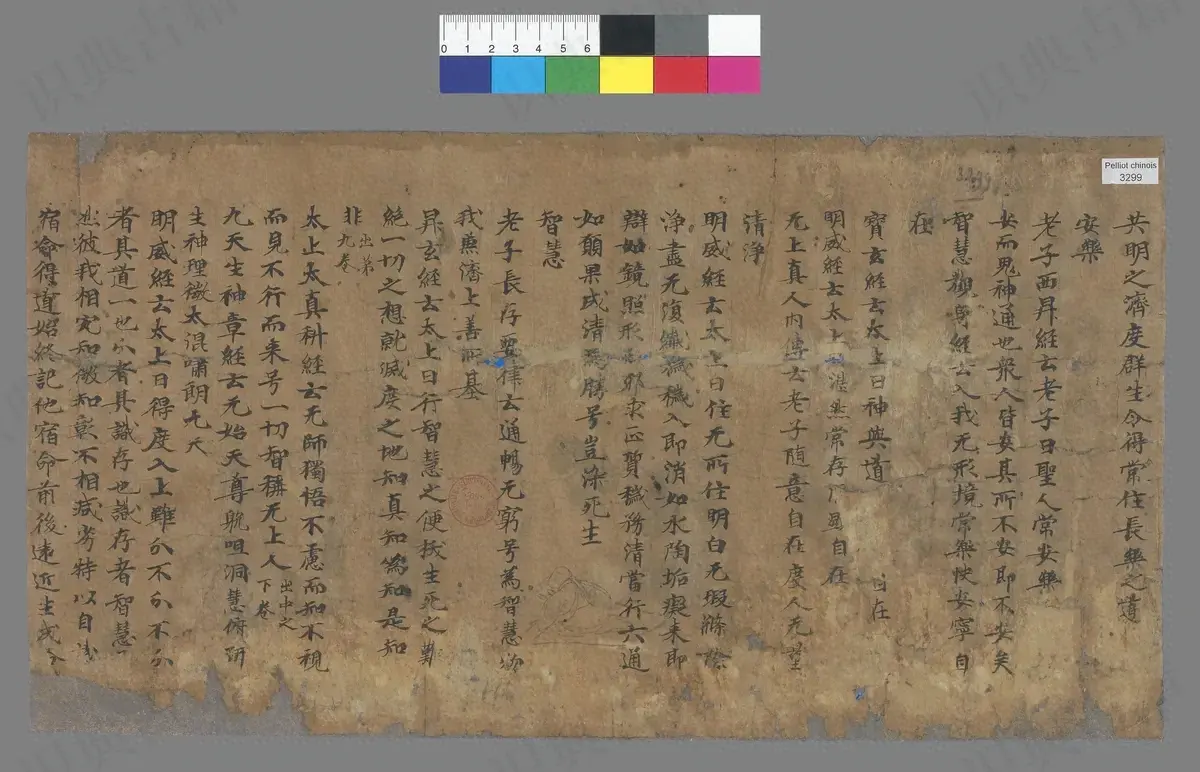 共明之濟度群生令得常住長樂之道
安樂
老子西昇經云老子曰聖人常安樂
安而鬼神通也衆人皆安其所不安即不安矣
智慧觀身經云入我无形境常樂快安寧自
在
寶玄經云太上曰神與道 自在
明威經云太上 湛然常存 自在
无上真人内傳云老子随意自在度人无量
清淨
明威經云太上曰住无所住明白无瑕滌除
淨盡无復纖 穢入即消如水陶垢癡来即
辯如鏡照形 邪求正質穢務清當行六通
如願果成清 号豈染死生
智慧
老子長存要律云通暢无窮号為智慧
我 濟上善 基
昇玄經云太上曰行智慧之便拔生死之難
絶一切之想就滅度之地知真知為知是知
非 出第九卷
太上太真科經云无師獨悟不慮而知不視
而見不行而来号一切智稱无上人 出中之下卷
九天生神章經云元始天尊 咀洞慧俯研
生神理微太混嘯朗九天
明威經云太上曰得度入上雖分不分不分
者其道一也分者其識存也識存者智慧
彼我相 知微知 不相 特以自
宿命得道始終記他宿命前後遠近生或
Pelliot chinois
3299
0 1 2 3 4 5 6